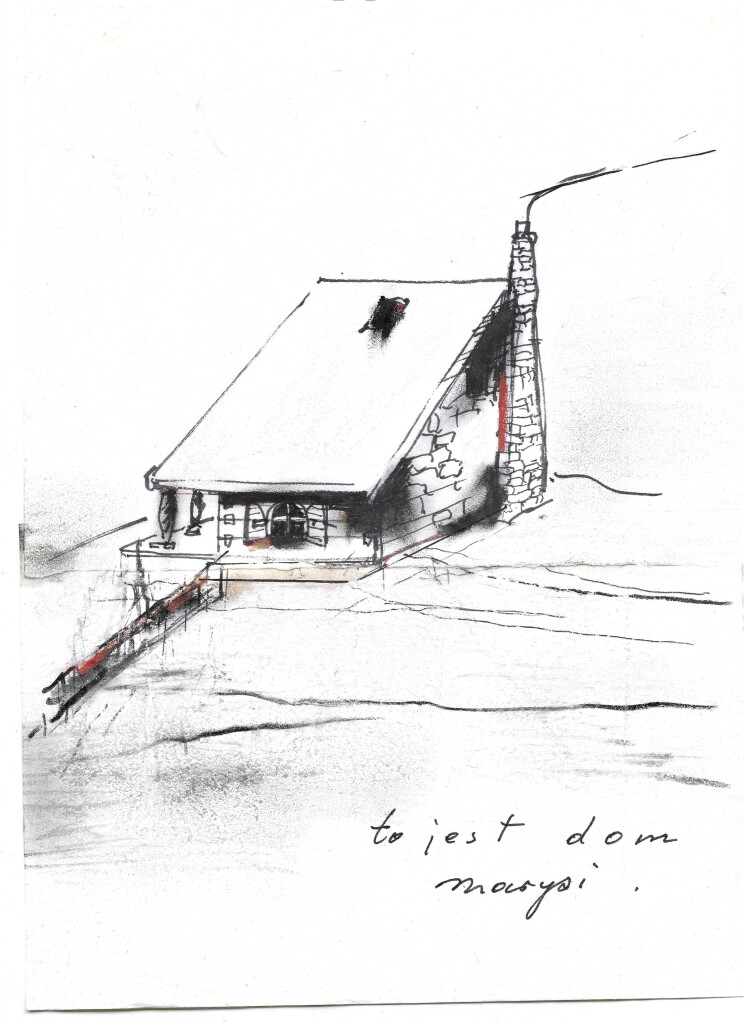 to jest dom
marysi.